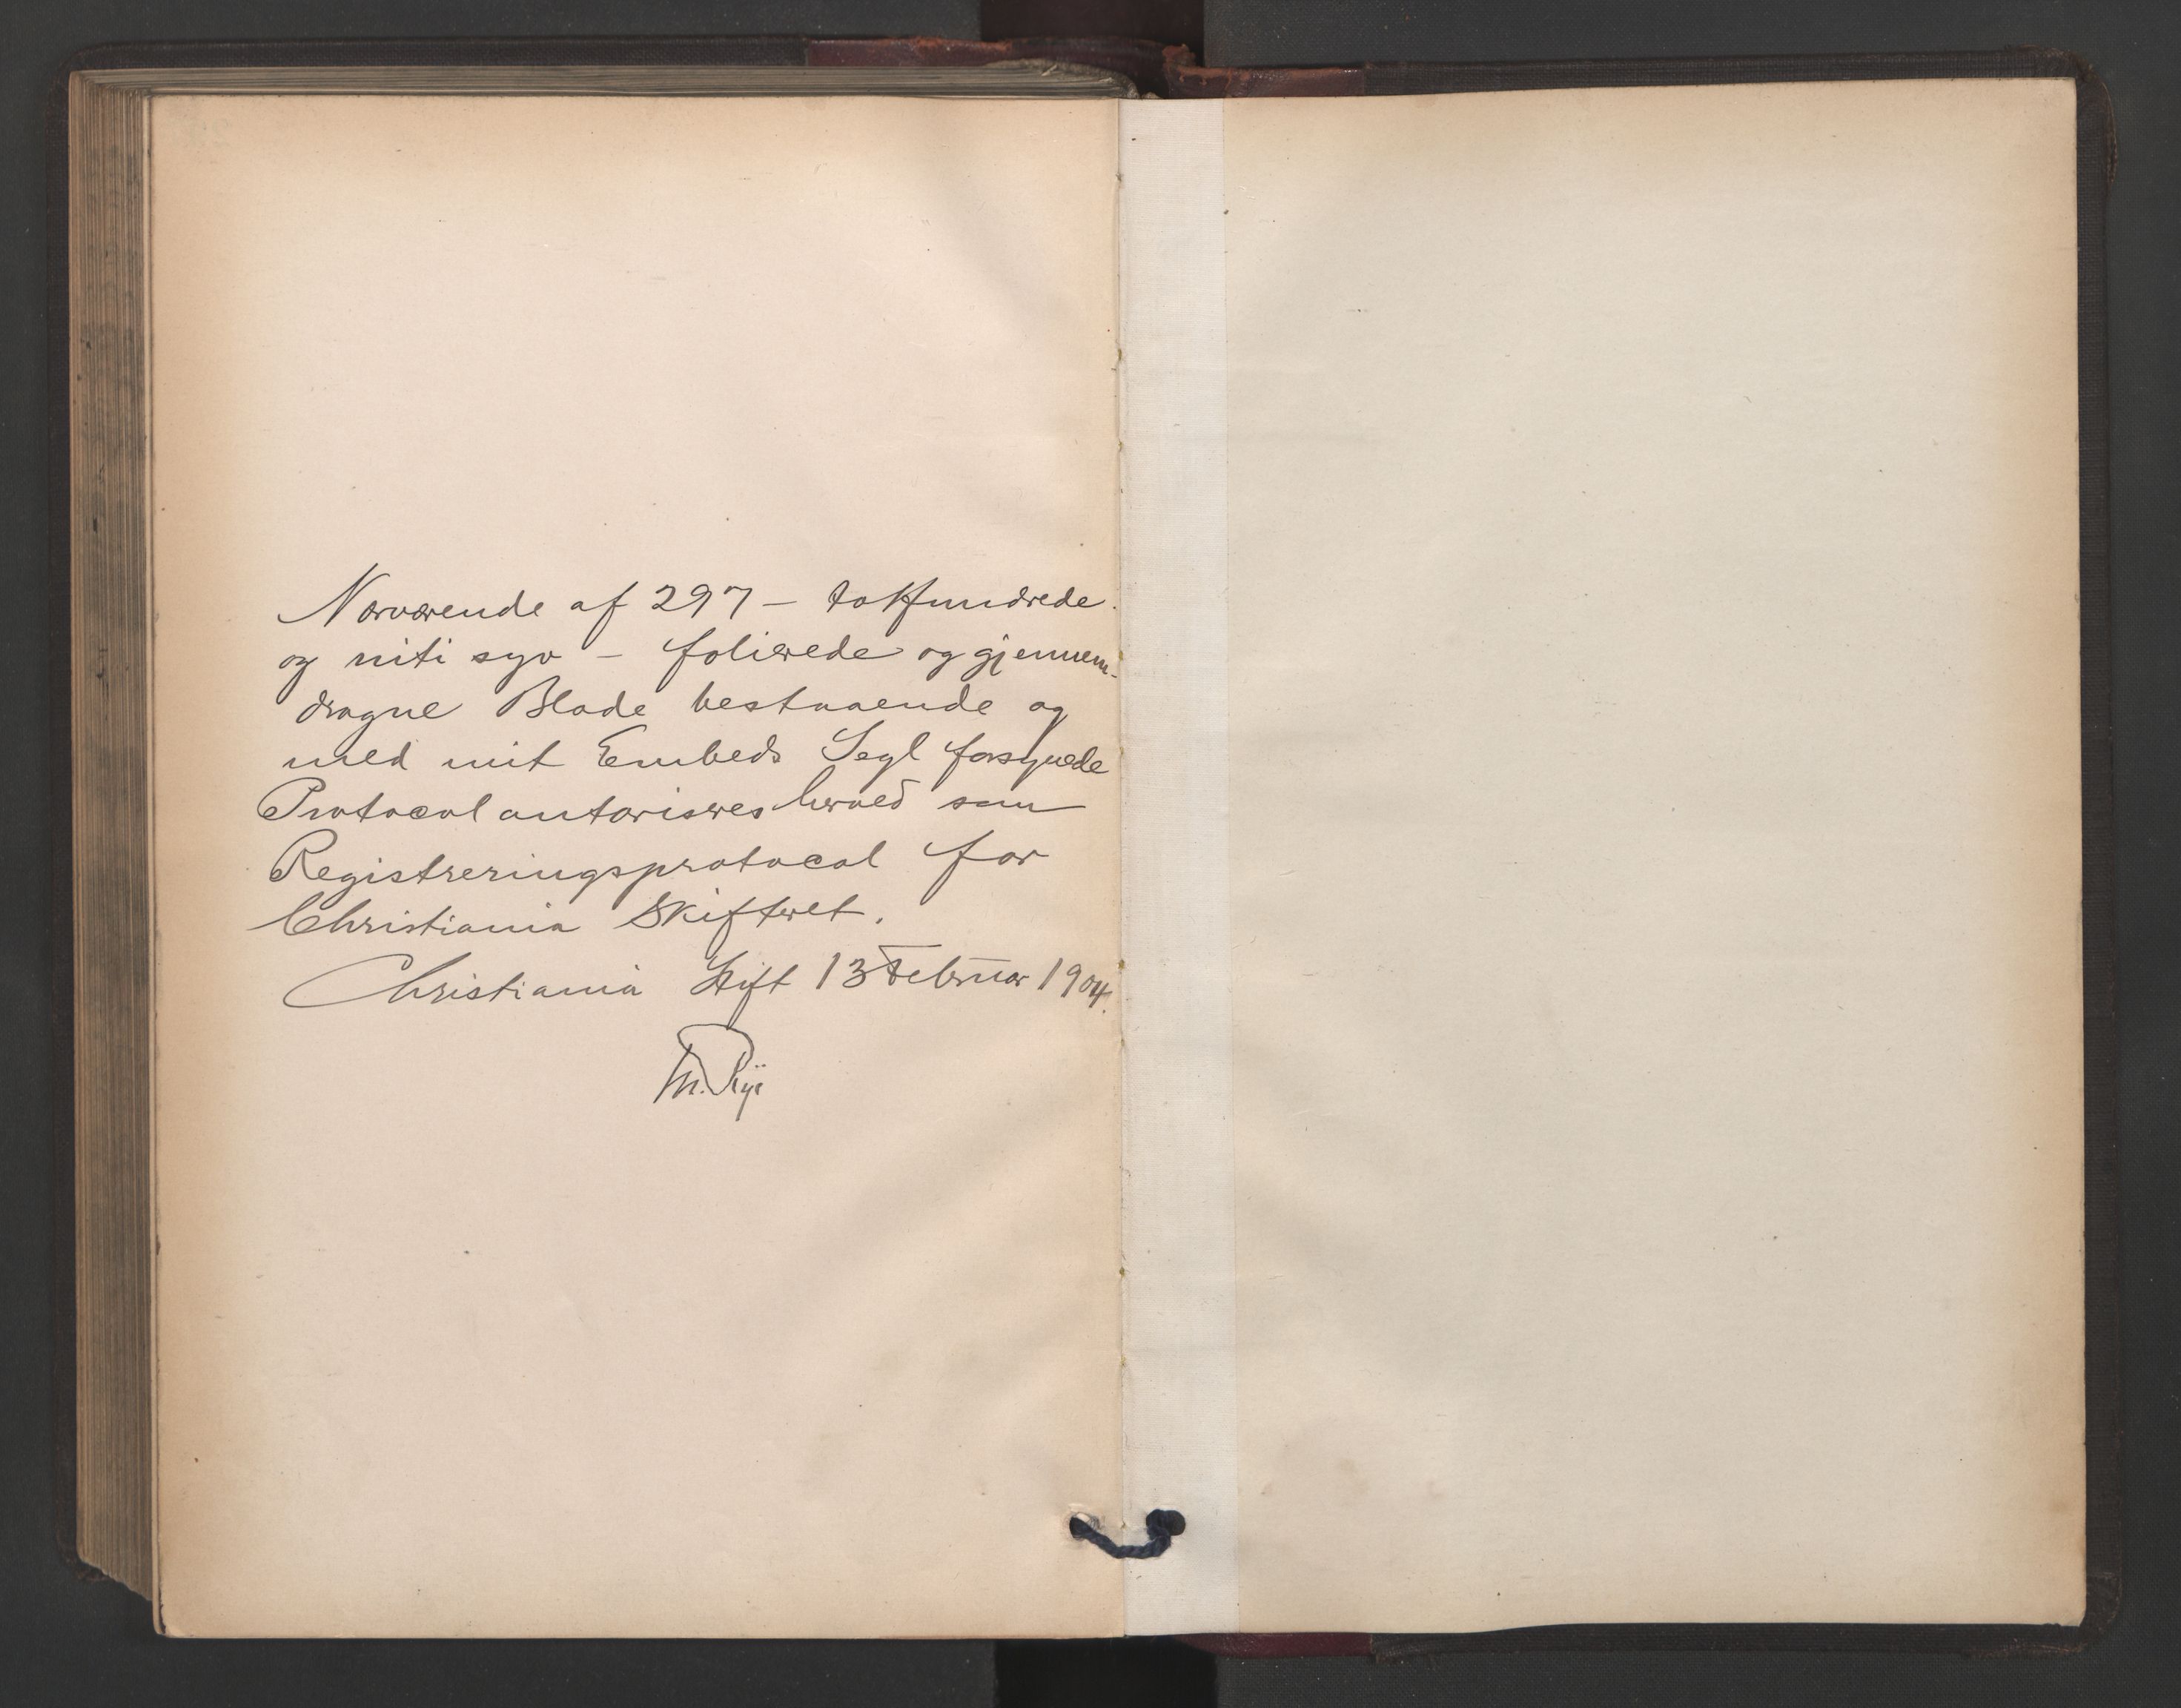 Nærværende af 297 – toHundrede
og niti syv – folierede og gjennem-
dragne Blade bestaaende og
med mit Embeds Segl forsynede
Protocol autoriseres herved som
Registreringsprotocol for
Christiania Skifteret.
Christiania Stift 13 Februar 1904.
M. Rye